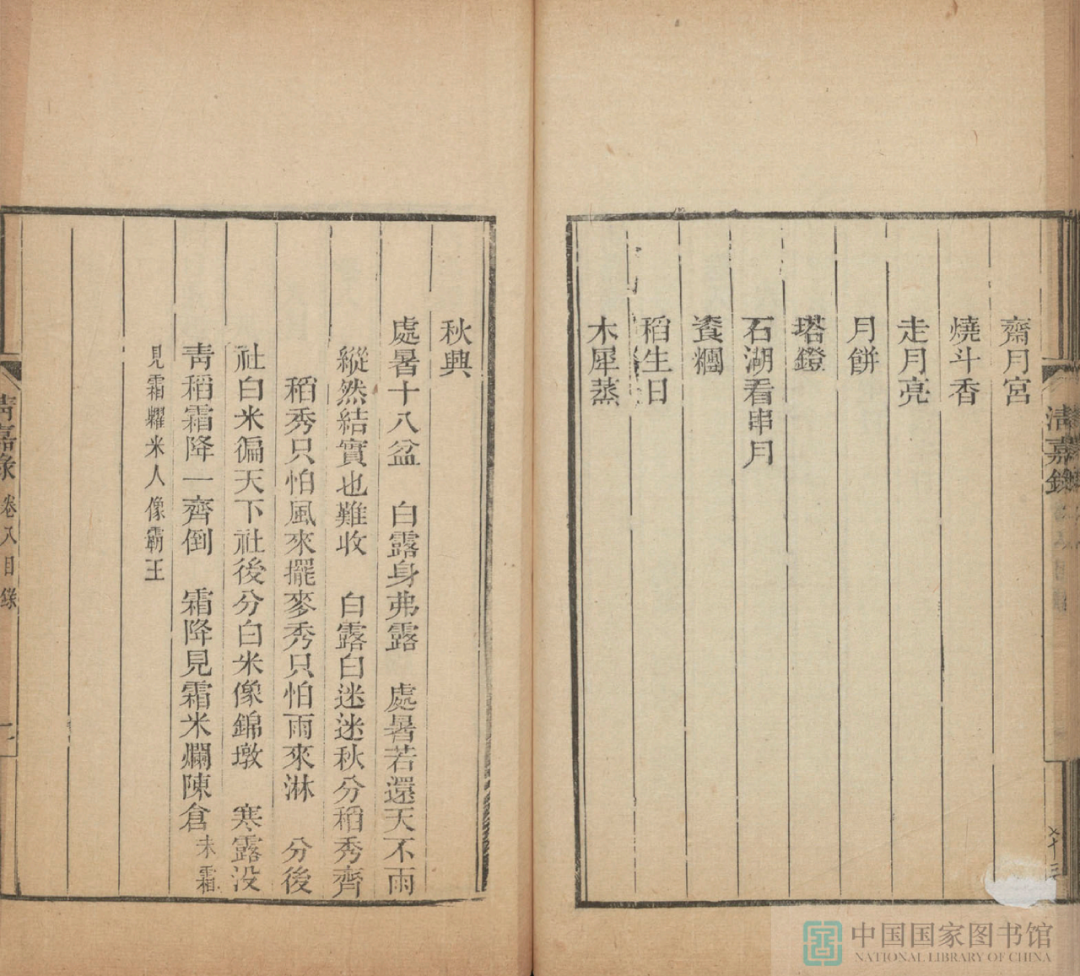 清嘉錄
齋月宮
燒斗香
走月亮
月餅
塔鐙
石湖看串月
餈糰
稻生日
木犀蒸
秋興
處暑十八盆 白露身弗露 處暑若還天不雨
縱然結實也難收 白露白迷迷秋分稻秀齊
稻秀只怕風來擺麥秀只怕雨來淋 分後
社白米徧天下社後分白米像錦墩 寒露没
青稻霜降一齊倒 霜降見霜米爛陳倉 未霜
見霜糶米人像霸王
清嘉錄 卷八目錄
中国国家图书馆
NATIONAL LIBRARY OF CHINA